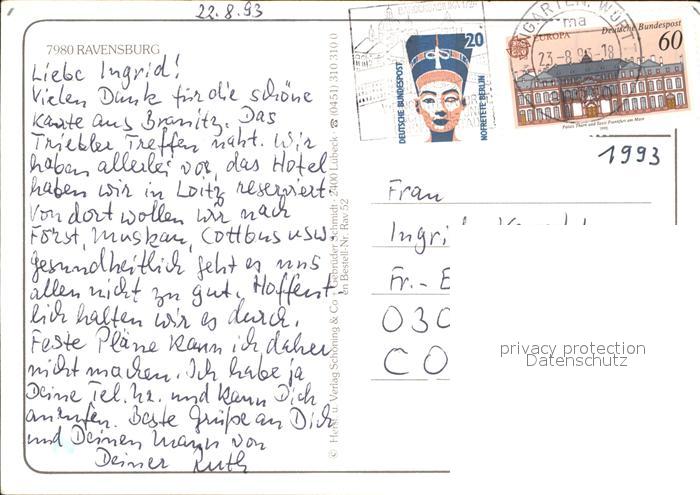 22.8.93
7980 RAVENSBURG
Liebe Ingrid!
Vielen Dank für die schöne
Karte aus Branitz. Das
Triebler Treffen naht. Wir
haben allerlei vor, das Hotel
haben wir in Loitz reserviert.
Von dort wollen wir nach
Forst, Muskau, Cottbus usw.
Gesundheitlich geht es uns
allen nicht zu gut. Hoffent-
lich halten wir es durch.
Feste Pläne kann ich daher
nicht machen. Ich habe ja
Deine Tel. Nr. und kann Dich
anrufen. Beste Grüße an Dich
und Deinen Mann von
Deiner Ruth
© Herst. u. Verlag Schöning & Co · Gebrüder Schmidt · 2400 Lübeck ☎ (0451) 310 310 0
Bestell-Nr. Rav 52
20
DEUTSCHE BUNDESPOST
NOFRETETE BERLIN
EUROPA
Deutsche Bundespost
60
Palais Thurn und Taxis Frankfurt am Main
23.-8.93-18
1993
Frau
Ingrid
Fr.-
030
CO
privacy protection
Datenschutz